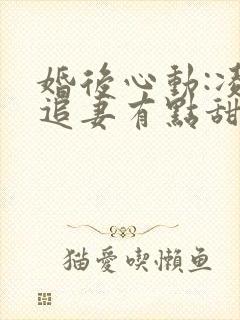 婚後心動:凌
追妻有點甜
猫愛喫懶鱼